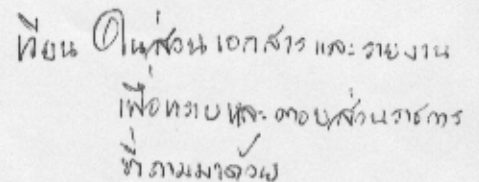 เรียน ในส่วนเอกสารและรายงาน
เพื่อทราบและตอบส่วนราชการ
ที่ถามมาด้วย